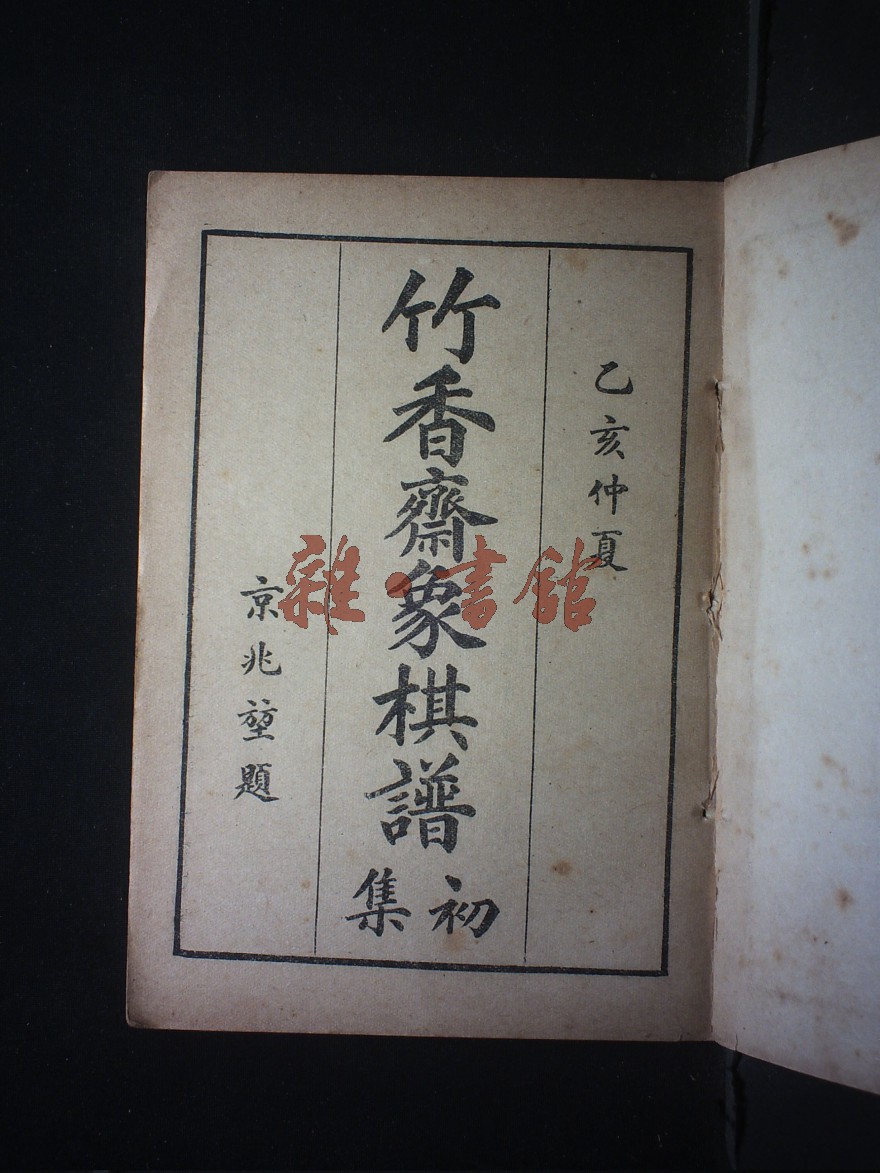 乙亥仲夏
竹香齋象棋譜
初集
京兆堃題
雜·書館